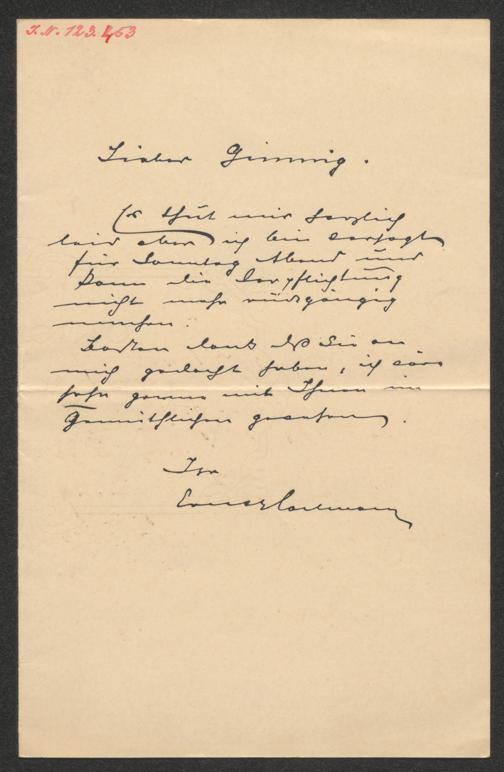 I.N. 123.453
Lieber Gimnig.
Es thut mir herzlich
leid aber ich bin versagt
für Sonntag Abend und
kann die Verpflichtung
nicht mehr rückgängig
machen.
Besten Dank daß Sie an
mich gedacht haben, ich wäre
sehr gerne mit Ihnen im
Gemüthlichen gesessen.
Ihr
Ernst Hartmann